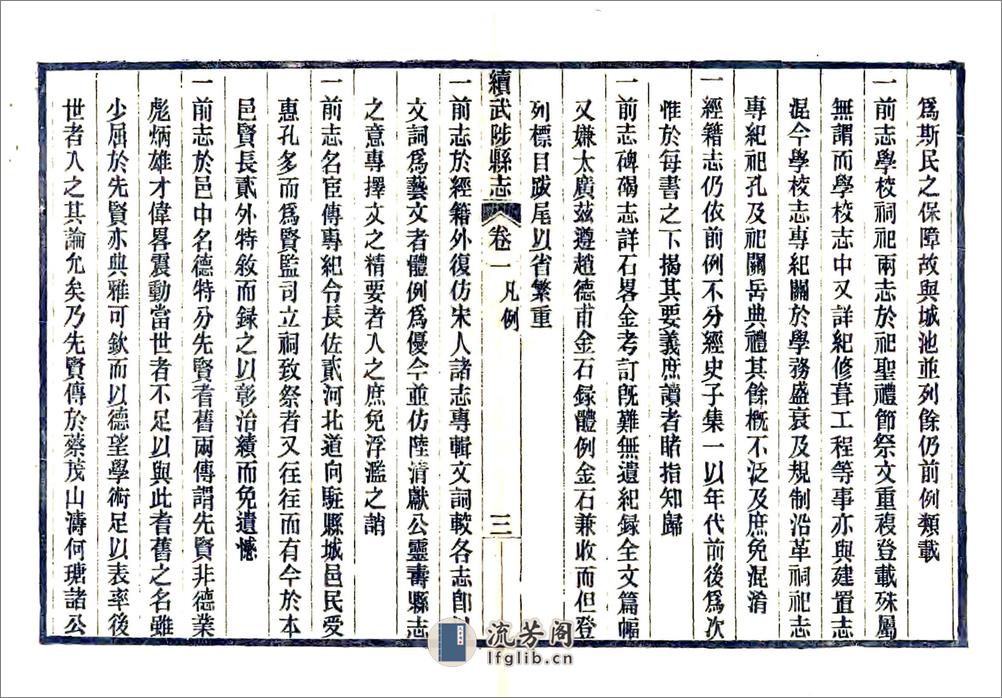 爲斯民之保障故與城池並列餘仍前例類載
一前志學校祠祀兩志於祀聖禮節祭文重複登載殊屬
無謂而學校志中又詳紀修葺工程等事亦與建置志
混今學校志專紀關於學務盛衰及規制沿革祠祀志
專紀祀孔及祀關岳典禮其餘概不泛及庶免混淆
一經籍志仍依前例不分經史子集一以年代前後爲次
惟於每書之下揭其要義庶讀者睹指知歸
一前志碑碣志詳石畧金考訂旣難無遺紀録全文篇幅
又嫌太廣玆遵趙德甫金石録體例金石兼收而但登
列標目跋尾以省繁重
續武陟縣志 卷一 凡例 三
一前志於經籍外復仿宋人諸志專輯文詞較各志卽以
文詞爲藝文者體例爲優今並仿陸清獻公靈壽縣志
之意專擇文之精要者入之庶免浮濫之誚
一前志名臣傳專紀令長佐貳河北道向駐縣城邑民受
惠孔多而爲賢監司立祠致祭者又往往而有今於本
邑賢長貳外特敘而録之以彰治績而免遺憾
一前志於邑中名德特分先賢耆舊兩傳謂先賢非德業
彪炳雄才偉畧震動當世者不足以與此耆舊之名雖
少屈於先賢亦典雅可欽而以德望學術足以表率後
世者入之其論允矣乃先賢傳於蔡茂山濤何瑭諸公
流芳阁
lfglib.cn